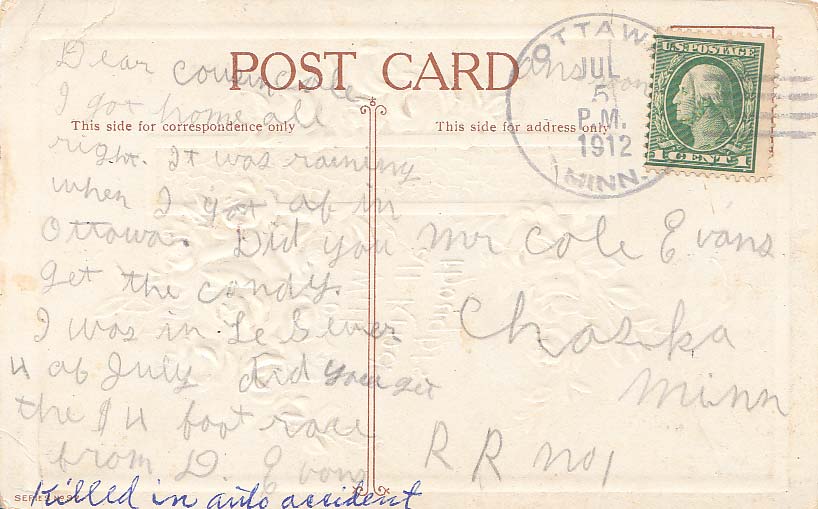 POST CARD
This side for correspondence only
This side for address only
OTTAWA
JUL
5
P.M.
1912
MINN.
U.S. POSTAGE
1 CENT 1
Dear cousin cole
I got home all
right. It was raining
when I got of in
Ottowa. Did you
get the candy.
I was in Le Sever
4 of July did you get
the foot race
from D. Evans
ans soon
Mr Cole Evans
Chaska
Minn
R R no 1
SERIES
Killed in auto accident